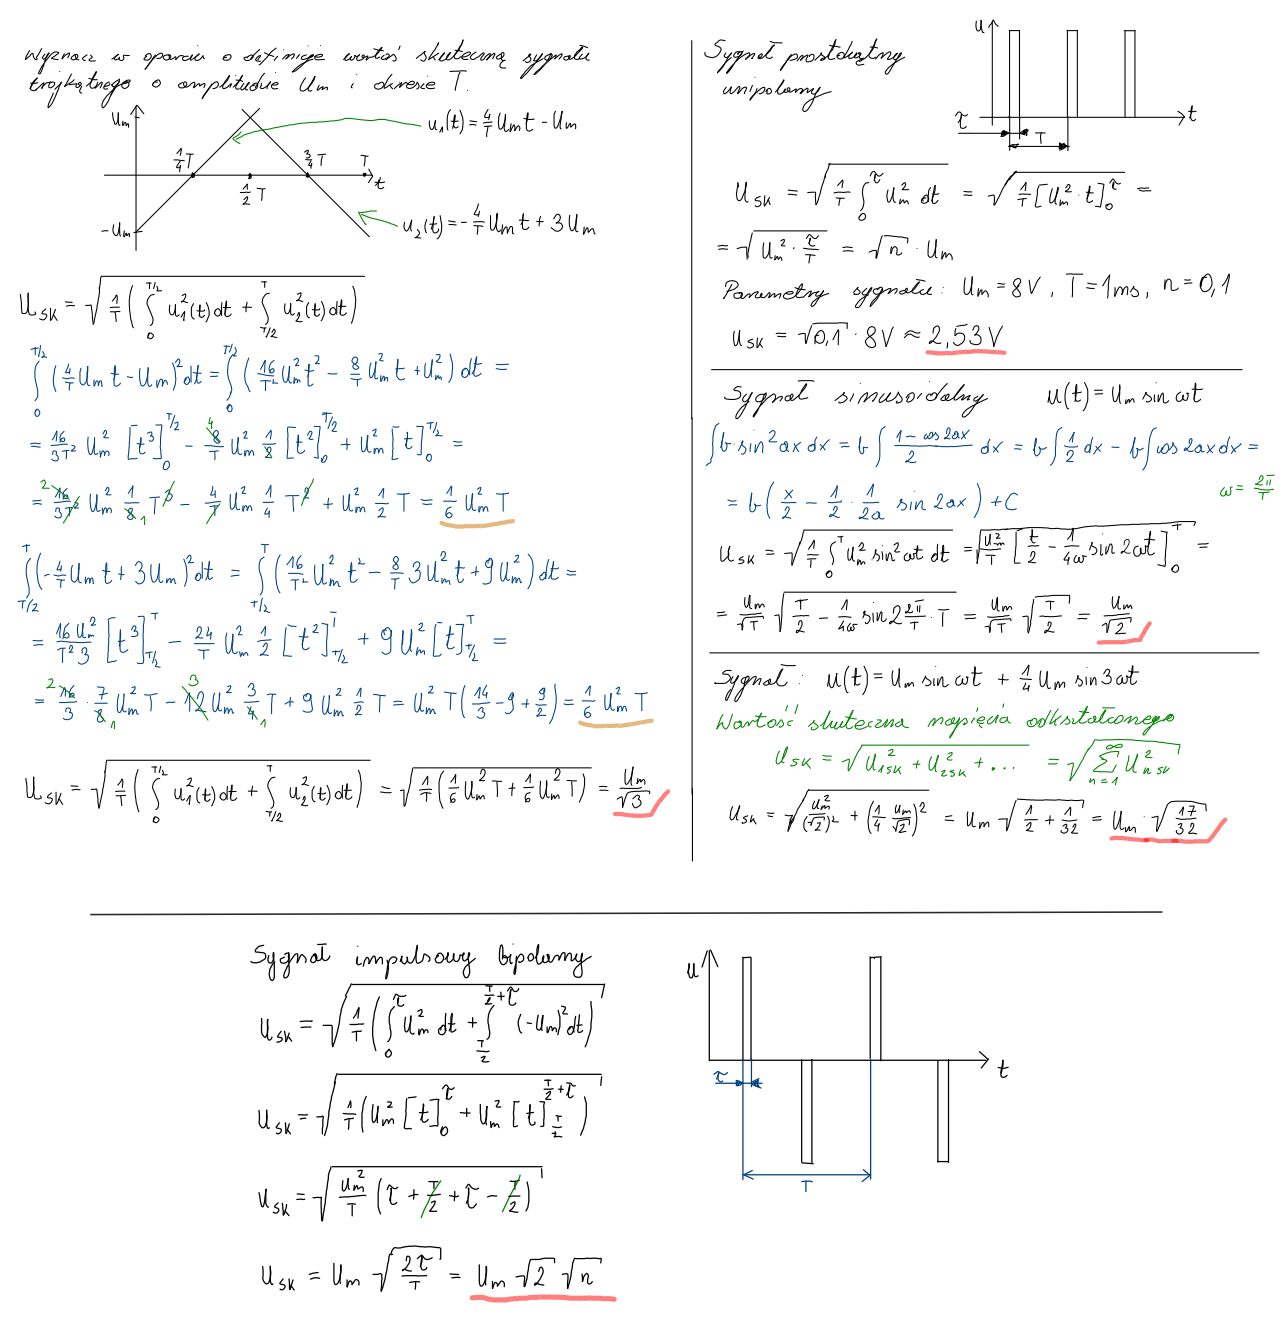 Wyznacz w oparciu o definicje wartoś skuteczną sygnału
trójkątnego o amplitudzie Um i okresie T.
Um
u₁(t) = 4/T Um t - Um
1/4 T
3/4 T
T
1/2 T
t
-Um
u₂(t) = -4/T Um t + 3 Um
U_SK = √(1/T (∫₀^{T/2} u₁²(t) dt + ∫_{T/2}^{T} u₂²(t) dt))
∫₀^{T/2} (4/T Um t - Um)² dt = ∫₀^{T/2} (16/T² Um² t² - 8/T Um² t + Um²) dt =
= 16/3T² Um² [t³]₀^{T/2} - 8/T Um² 1/2 [t²]₀^{T/2} + Um² [t]₀^{T/2} =
= 16/3T² Um² 1/8 T³ - 4/T Um² 1/4 T² + Um² 1/2 T = 1/6 Um² T
∫_{T/2}^{T} (-4/T Um t + 3 Um)² dt = ∫_{T/2}^{T} (16/T² Um² t² - 8/T 3 Um² t + 9 Um²) dt =
= 16 Um²/T² 3 [t³]_{T/2}^{T} - 24/T Um² 1/2 [t²]_{T/2}^{T} + 9 Um² [t]_{T/2}^{T} =
= 16/3 · 7/8 Um² T - 12 Um² 3/4 T + 9 Um² 1/2 T = Um² T (14/3 - 9 + 9/2) = 1/6 Um² T
U_SK = √(1/T (∫₀^{T/2} u₁²(t) dt + ∫_{T/2}^{T} u₂²(t) dt)) = √(1/T (1/6 Um² T + 1/6 Um² T)) = Um/√3
Sygnał prostokątny
unipolarny
u
t
τ
T
U_SK = √(1/T ∫₀^τ Um² dt) = √(1/T [Um² · t]₀^τ) =
= √(Um² · τ/T) = √n · Um
Parametry sygnału: Um = 8V, T = 1ms, n = 0,1
U_SK = √0,1 · 8V ≈ 2,53V
Sygnał sinusoidalny u(t) = Um sin ωt
∫ b · sin² ax dx = b ∫ (1 - cos 2ax)/2 dx = b ∫ 1/2 dx - b ∫ cos 2ax dx =
= b (x/2 - 1/2 · 1/2a sin 2ax) + C
ω = 2π/T
U_SK = √(1/T ∫₀^T Um² sin² ωt dt) = √(Um²/T [t/2 - 1/4ω sin 2ωt]₀^T) =
= Um/√T √(T/2 - 1/4ω sin 2 2π/T · T) = Um/√T √(T/2) = Um/√2
Sygnał: u(t) = Um sin ωt + 1/4 Um sin 3ωt
Wartość skuteczna napięcia odkształconego
U_SK = √(U_1SK² + U_2SK² + ...) = √(∑_{n=1}^{∞} U_nSK²)
U_SK = √(Um²/(√2)² + (1/4 Um/√2)²) = Um √(1/2 + 1/32) = Um · √(17/32)
Sygnał impulsowy bipolarny
U_SK = √(1/T (∫₀^τ Um² dt + ∫_{T/2}^{T/2+τ} (-Um)² dt))
U_SK = √(1/T (Um² [t]₀^τ + Um² [t]_{T/2}^{T/2+τ}))
U_SK = √(Um²/T (τ + T/2 + τ - T/2))
U_SK = Um √(2τ/T) = Um √2 √n
u
t
τ
T